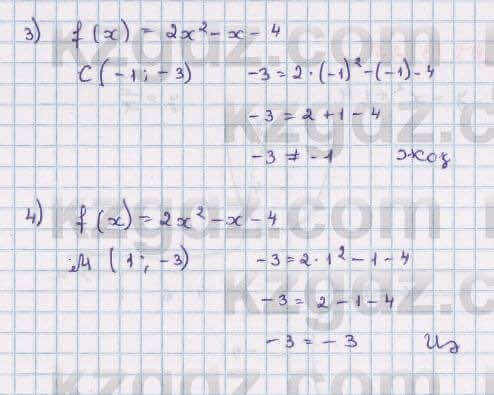 3) f(x) = 2x² - x - 4
C(-1; -3) -3 = 2·(-1)² - (-1) - 4
-3 = 2 + 1 - 4
-3 ≠ -1 жоқ
4) f(x) = 2x² - x - 4
M(1; -3) -3 = 2·1² - 1 - 4
-3 = 2 - 1 - 4
-3 = -3 Иә
kzgdz.com